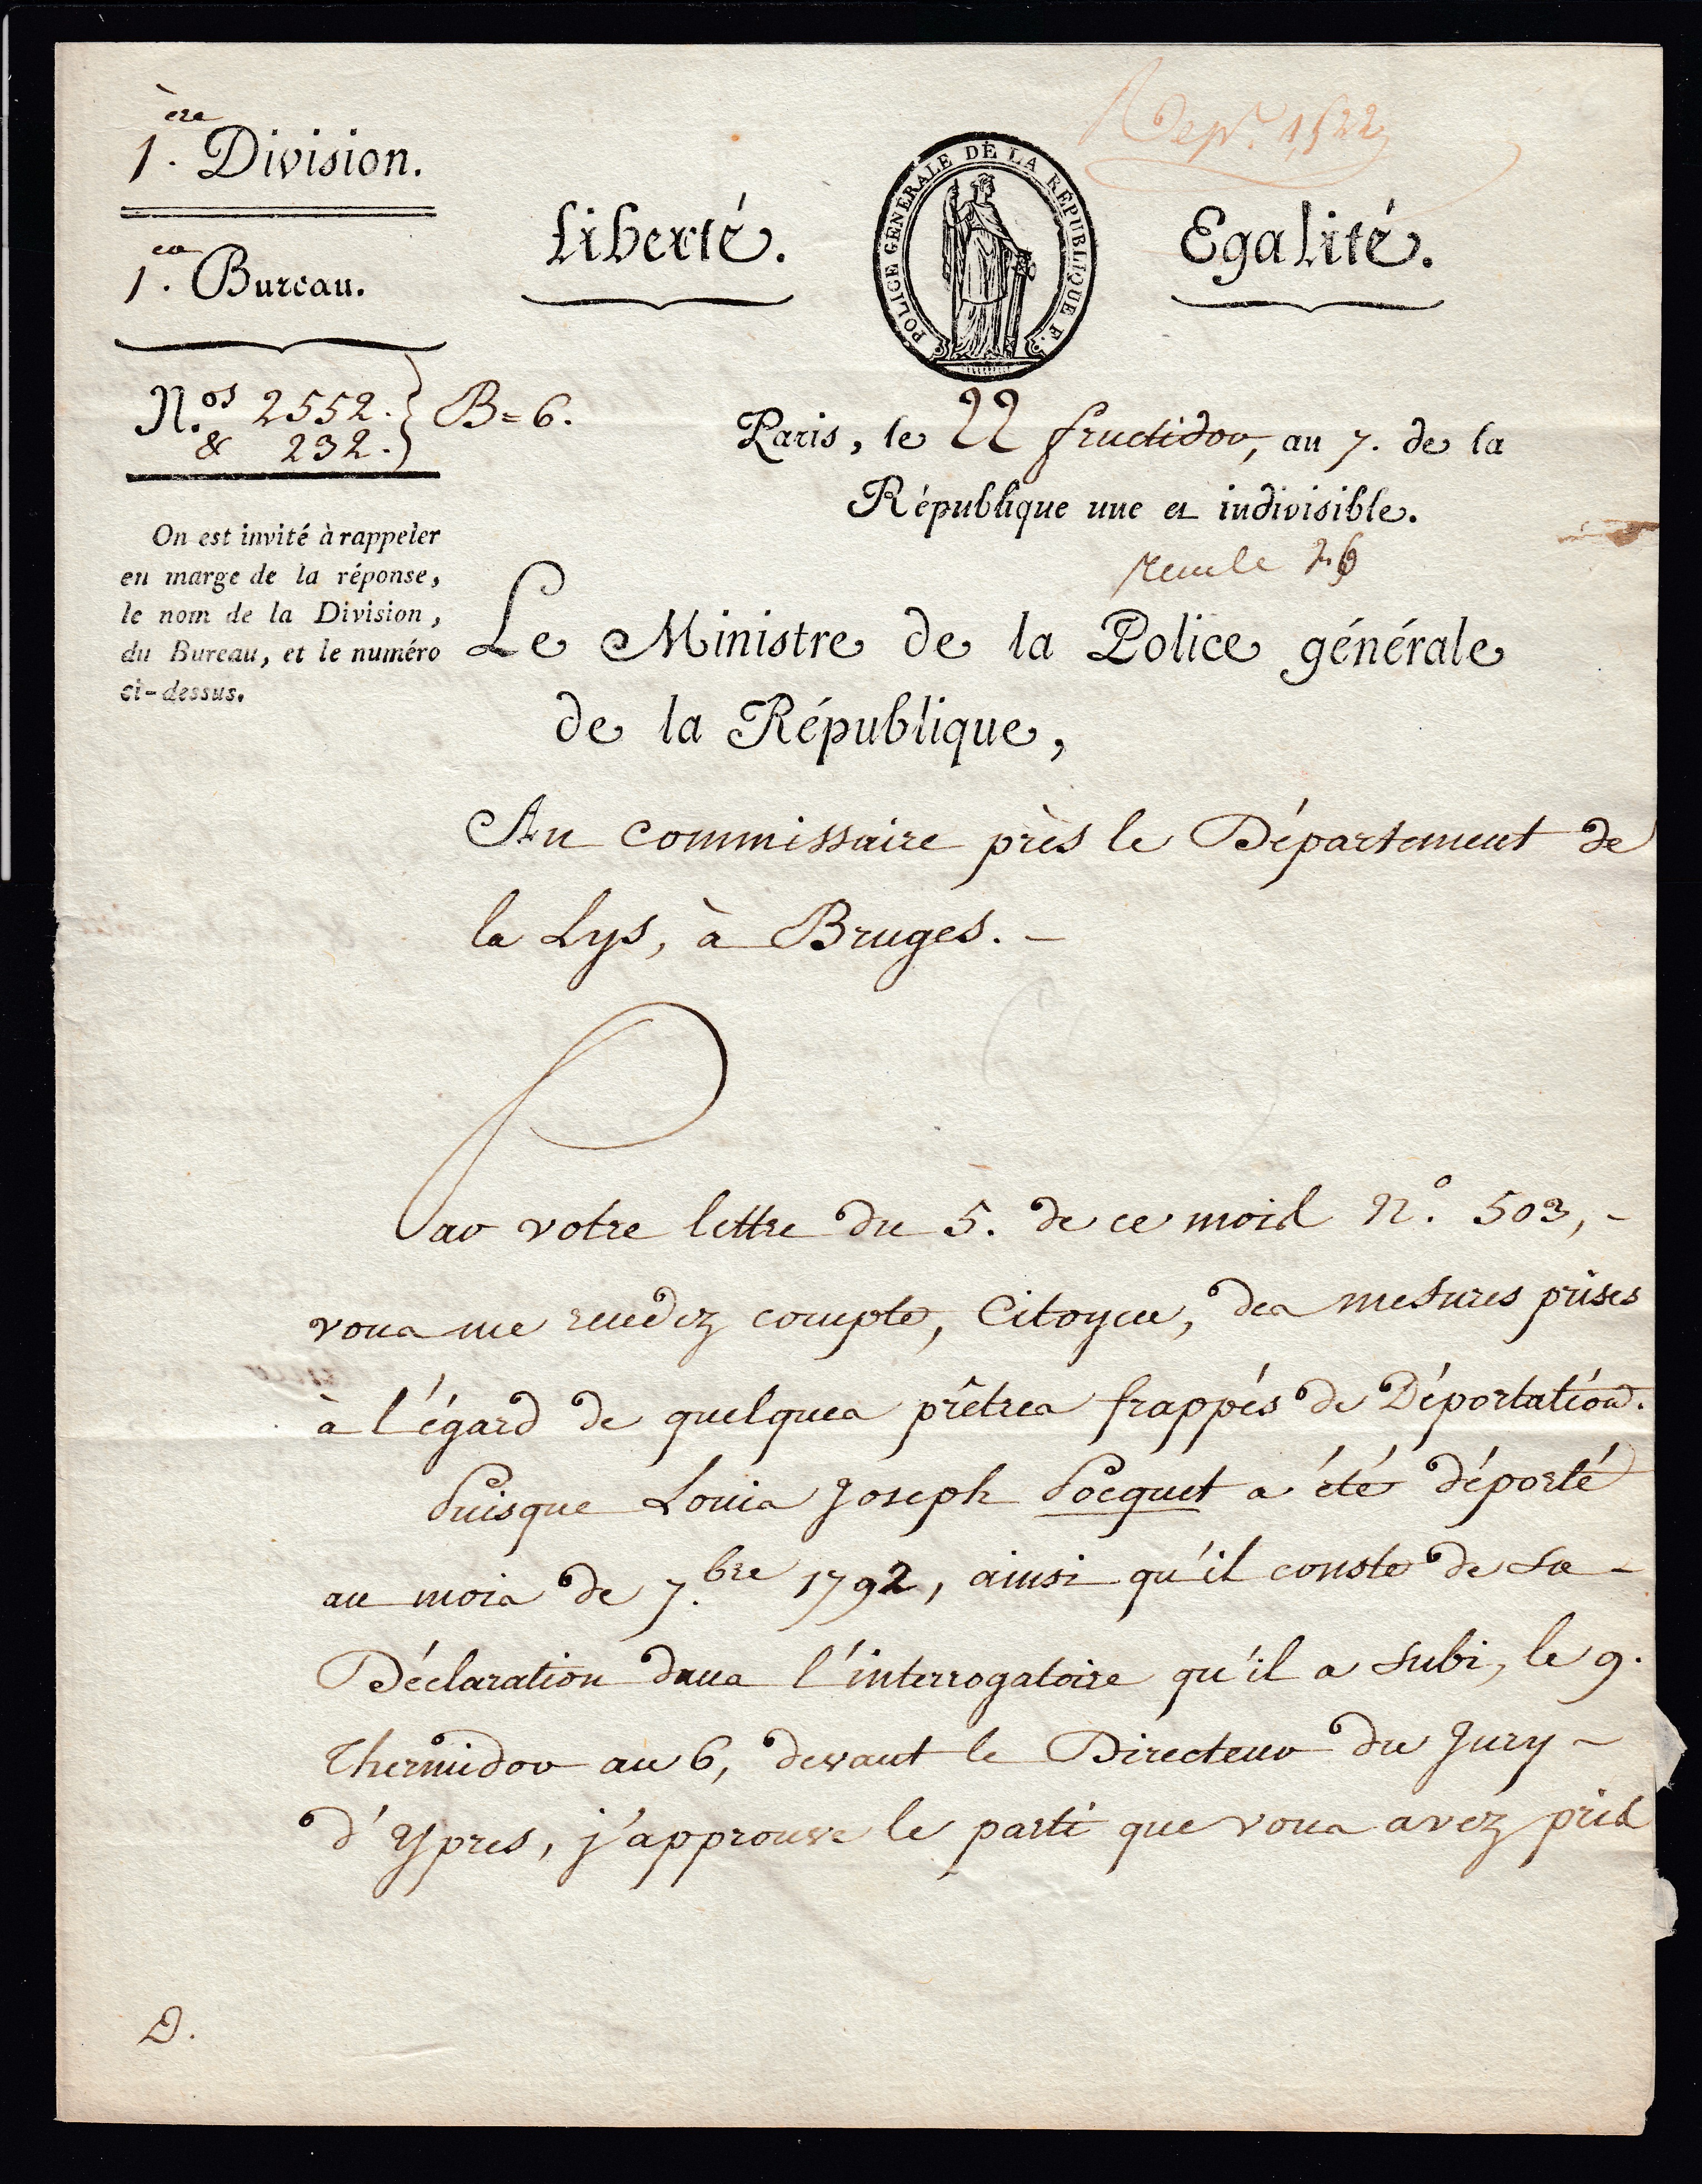 1.ère Division.
1.er Bureau.
N.os 2552. } B=6.
& 232.
On est invité à rappeler
en marge de la réponse,
le nom de la Division,
du Bureau, et le numéro
ci-dessus.
Liberté.
POLICE GENERALE DE LA REPUBLIQUE F.
Egalité.
Paris, le 22 fructidor, an 7. de la
République une et indivisible.
Le Ministre de la Police générale
de la République,
Au commissaire près le Département de
la Lys, à Bruges. -
Par votre lettre du 5. de ce mois N.° 503, -
vous me rendez compte, Citoyen, des mesures prises
à l'égard de quelques prêtres frappés de Déportation.
Puisque Louis Joseph Pocquet a été déporté
au mois de 7.bre 1792, ainsi qu'il conste de sa -
Déclaration dans l'interrogatoire qu'il a subi, le 9.
Thermidor an 6, devant le Directeur du Jury -
d'Ypres, j'approuve le parti que vous avez pris
D.